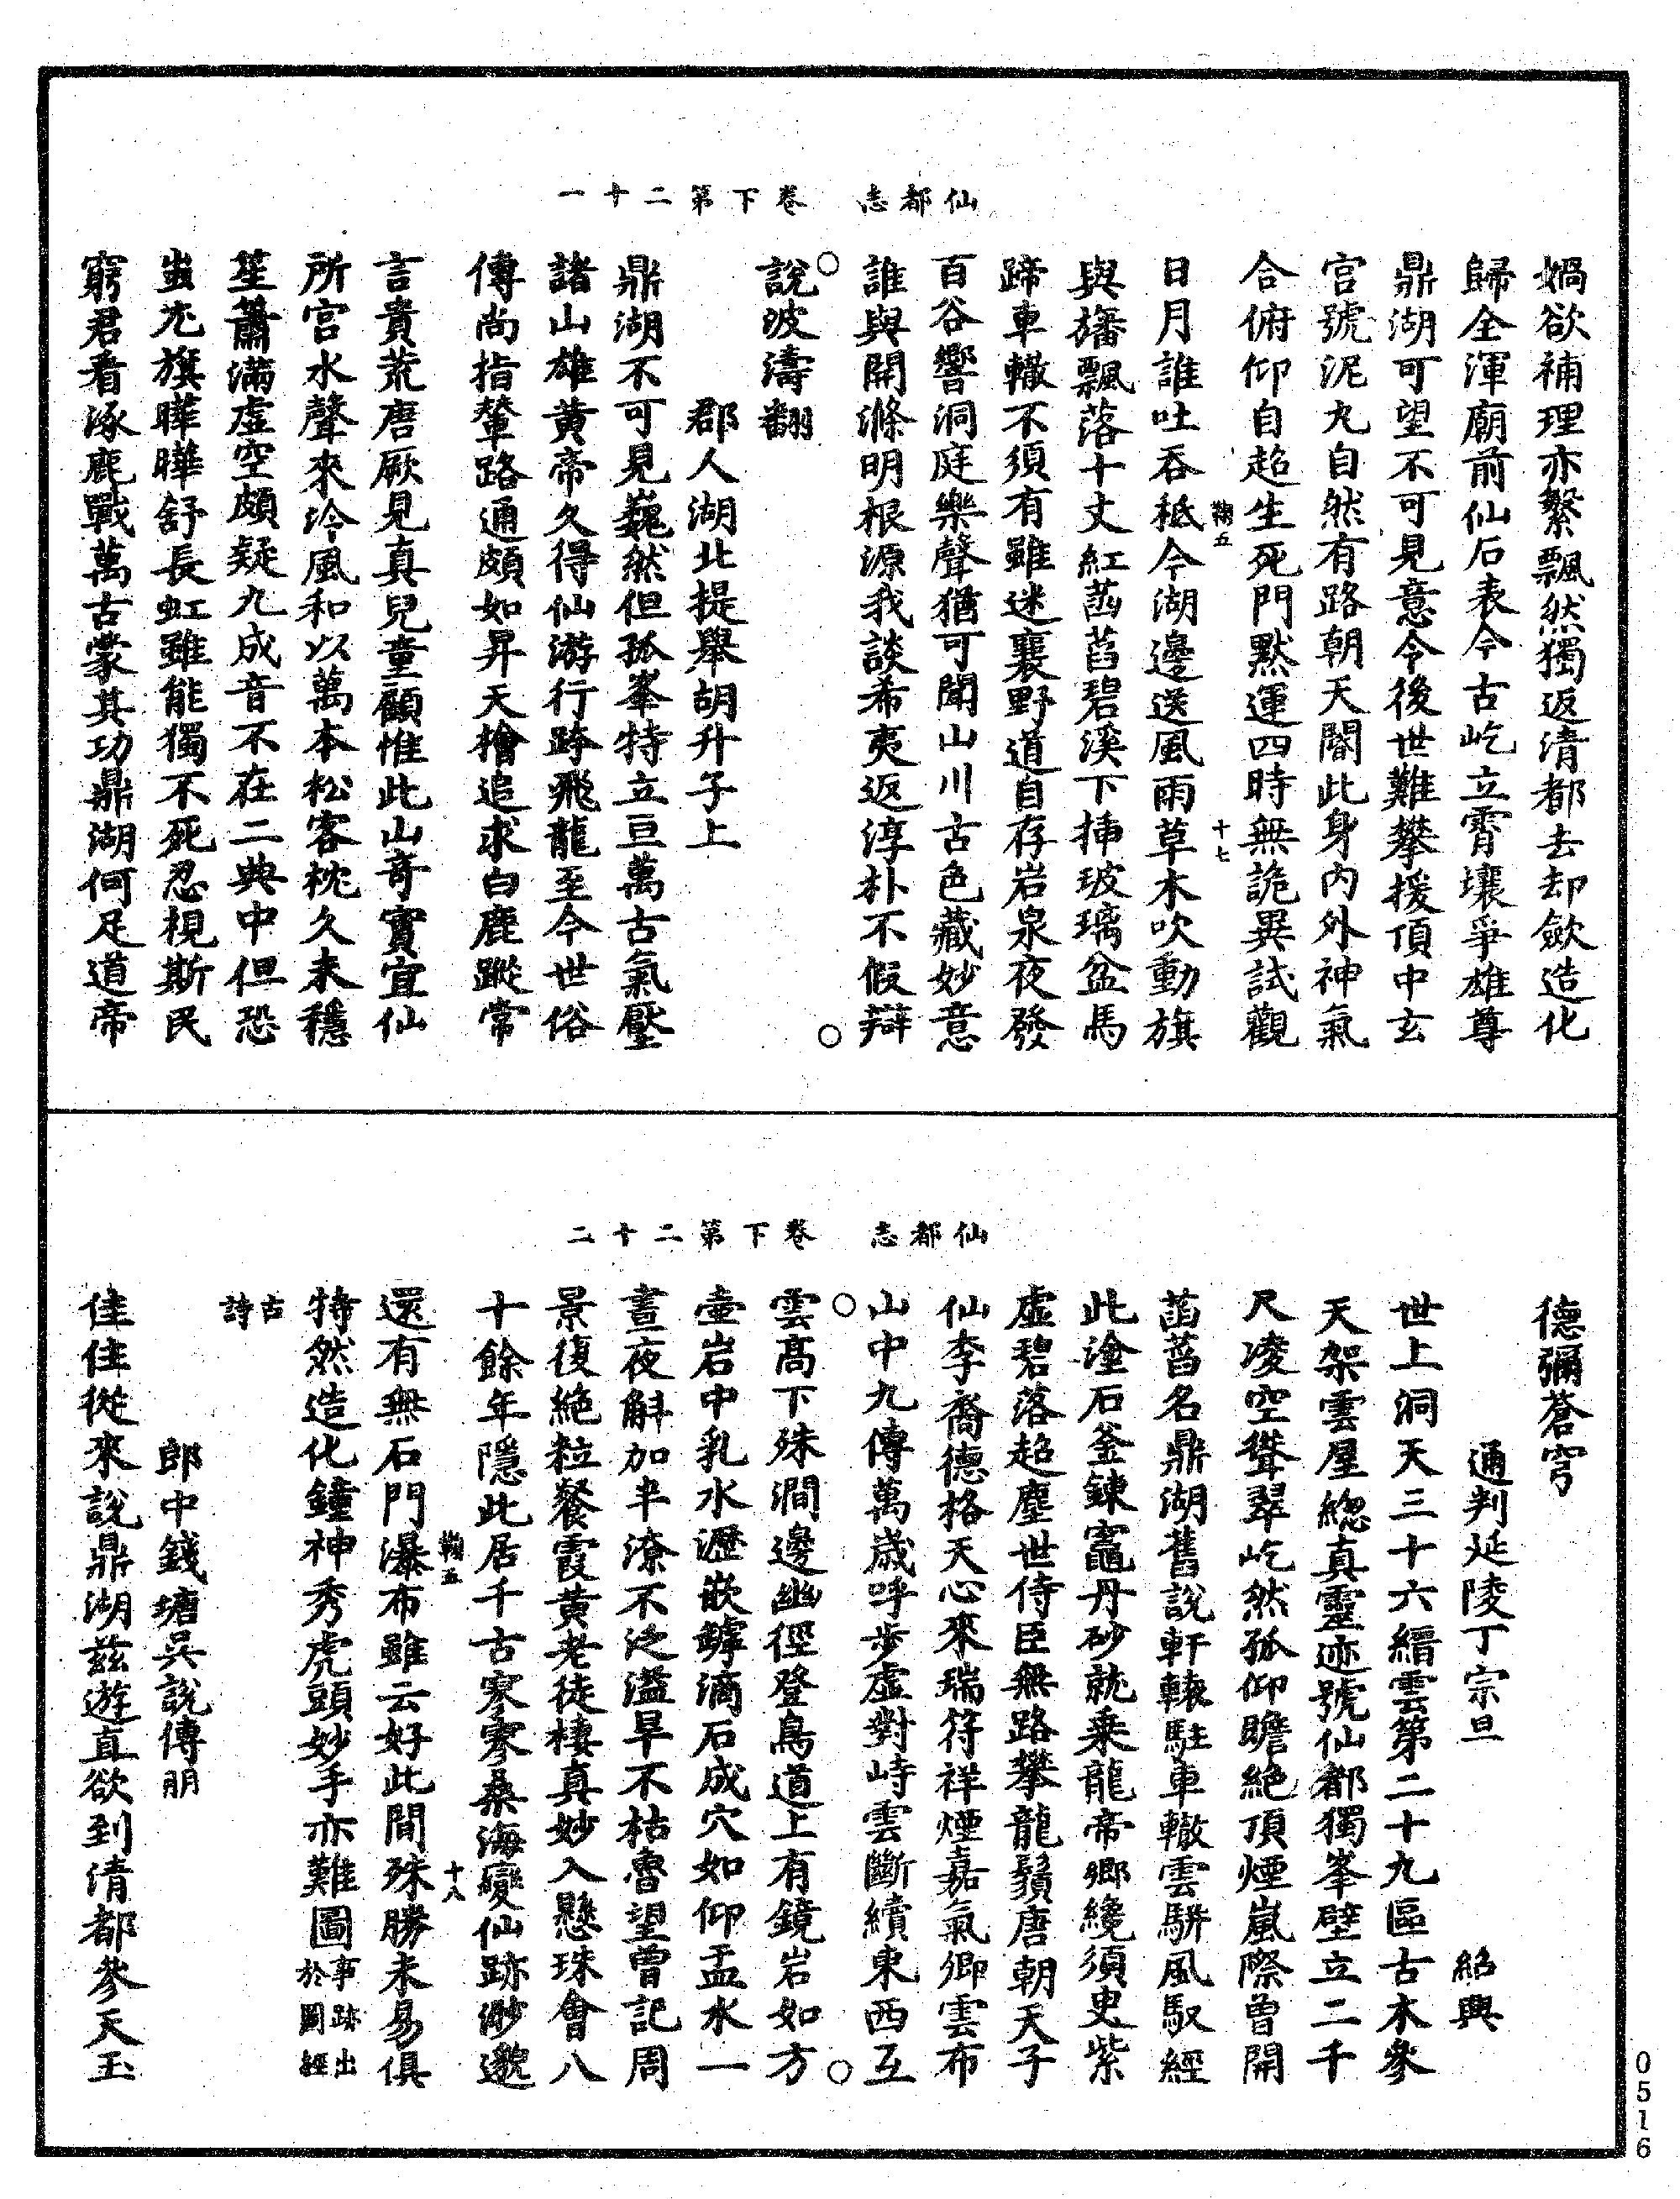 仙都志　卷下第二十一
媧欲補理亦繫飄然獨返清都去却歛造化
歸全渾廟前仙石表今古屹立霄壤爭雄尊
鼎湖可望不可見意令後世難攀援頂中玄
宫號泥丸自然有路朝天閽此身内外神氣
合俯仰自超生死門黙運四時無詭異試觀
鞠五　十七
日月誰吐吞秪今湖邊送風雨草木吹動旗
與旛飄落十丈紅菡萏碧溪下揷玻璃盆馬
蹄車轍不須有雖迷襄野道自存岩泉夜發
百谷響洞庭樂聲猶可聞山川古色藏妙意
誰與開滌明根源我談希夷返淳朴不假辯
說波濤翻
郡人湖北提舉胡升子上
鼎湖不可見巍然但孤峯特立亘萬古氣壓
諸山雄黄帝久得仙游行跨飛龍至今世俗
傳尚指輦路通頗如昇天檜追求白鹿蹤常
言貴荒唐厥見真兒童顧惟此山竒實宜仙
所宫水聲來泠風和以萬本松客枕久未穩
笙簫滿虚空頗疑九成音不在二典中但恐
蚩尤旗曄曄舒長虹雖能獨不死忍視斯民
窮君看涿鹿戰萬古蒙其功鼎湖何足道帝
仙都志　卷下第二十二
德彌蒼穹
通判延陵丁宗旦　紹興
世上洞天三十六縉雲第二十九區古木參
天架雲屋緫真靈迹號仙都獨峯壁立二千
尺凌空聳翠屹然孤仰瞻絶頂煙嵐際曾開
菡萏名鼎湖舊說軒轅駐車轍雲駢風馭經
此塗石釜鍊竈丹砂就乗龍帝鄉纔須臾紫
虚碧落超塵世侍臣無路攀龍鬚唐朝天子
仙李裔德格天心來瑞符祥煙嘉氣卿雲布
山中九傳萬歲呼步虚對峙雲斷續東西互
雲髙下殊澗邊幽徑登鳥道上有鏡岩如方
壷岩中乳水瀝嵌罅滴石成穴如仰盂水一
晝夜斛加半潦不泛溢旱不枯魯望曾記周
景復絶粒餐霞黄老徒棲真妙入懸珠會八
十餘年隱此居千古寥寥桑海變仙跡渺邈
鞠五　十八
還有無石門瀑布雖云好此間殊勝未易俱
特然造化鐘神秀虎頭妙手亦難圖事跡出於圖經
古詩
郎中錢塘吳說傳朋
佳佳從來說鼎湖兹遊直欲到清都參天玉
0516